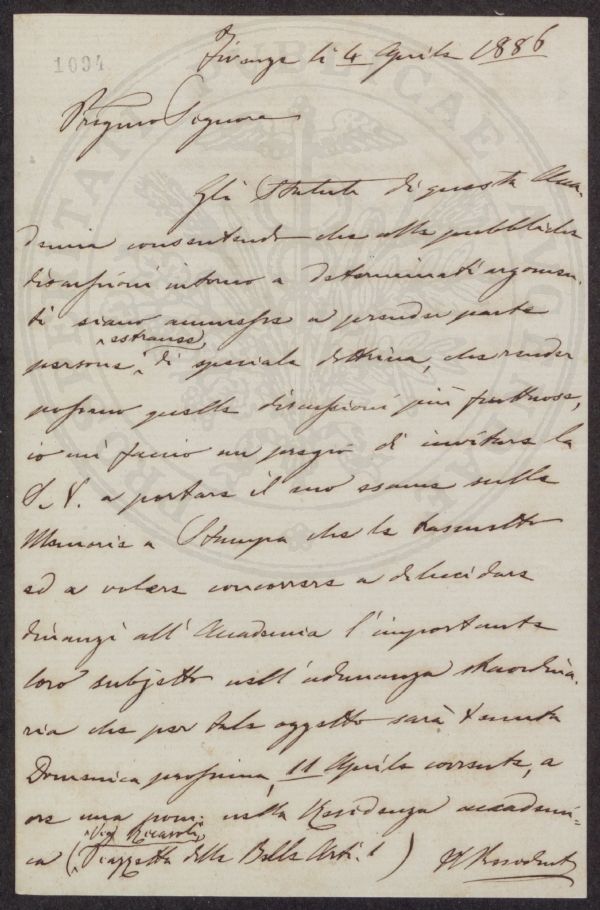 1094
Firenze li 4 Aprile 1886
Pregmo Signore
Gli Statuti di questa Acca-
demia consentendo che alle pubbliche
discussioni intorno a determinati argomen-
ti siano ammesse a prender parte
estranee,
persone, di speciale dottrina, che render
possano quelle discussioni più fruttuose,
io mi faccio un pregio di invitare la
S. V. a portare il suo esame sulla
Memoria a Stampa che le trasmetto
ed a volere concorrere a delucidare
dinanzi all'Accademia l'importante
loro subjetto nell'adunanza straordina-
ria che per tale oggetto sarà tenuta
Domenica prossima, 11 Aprile corrente, a
ore una pom: nella Residenza accademi-
Via Ricasoli,
ca (Piazzetta delle Belle Arti.)
Il
PUBLICAE
PROSPERITATI
AUGENDAE